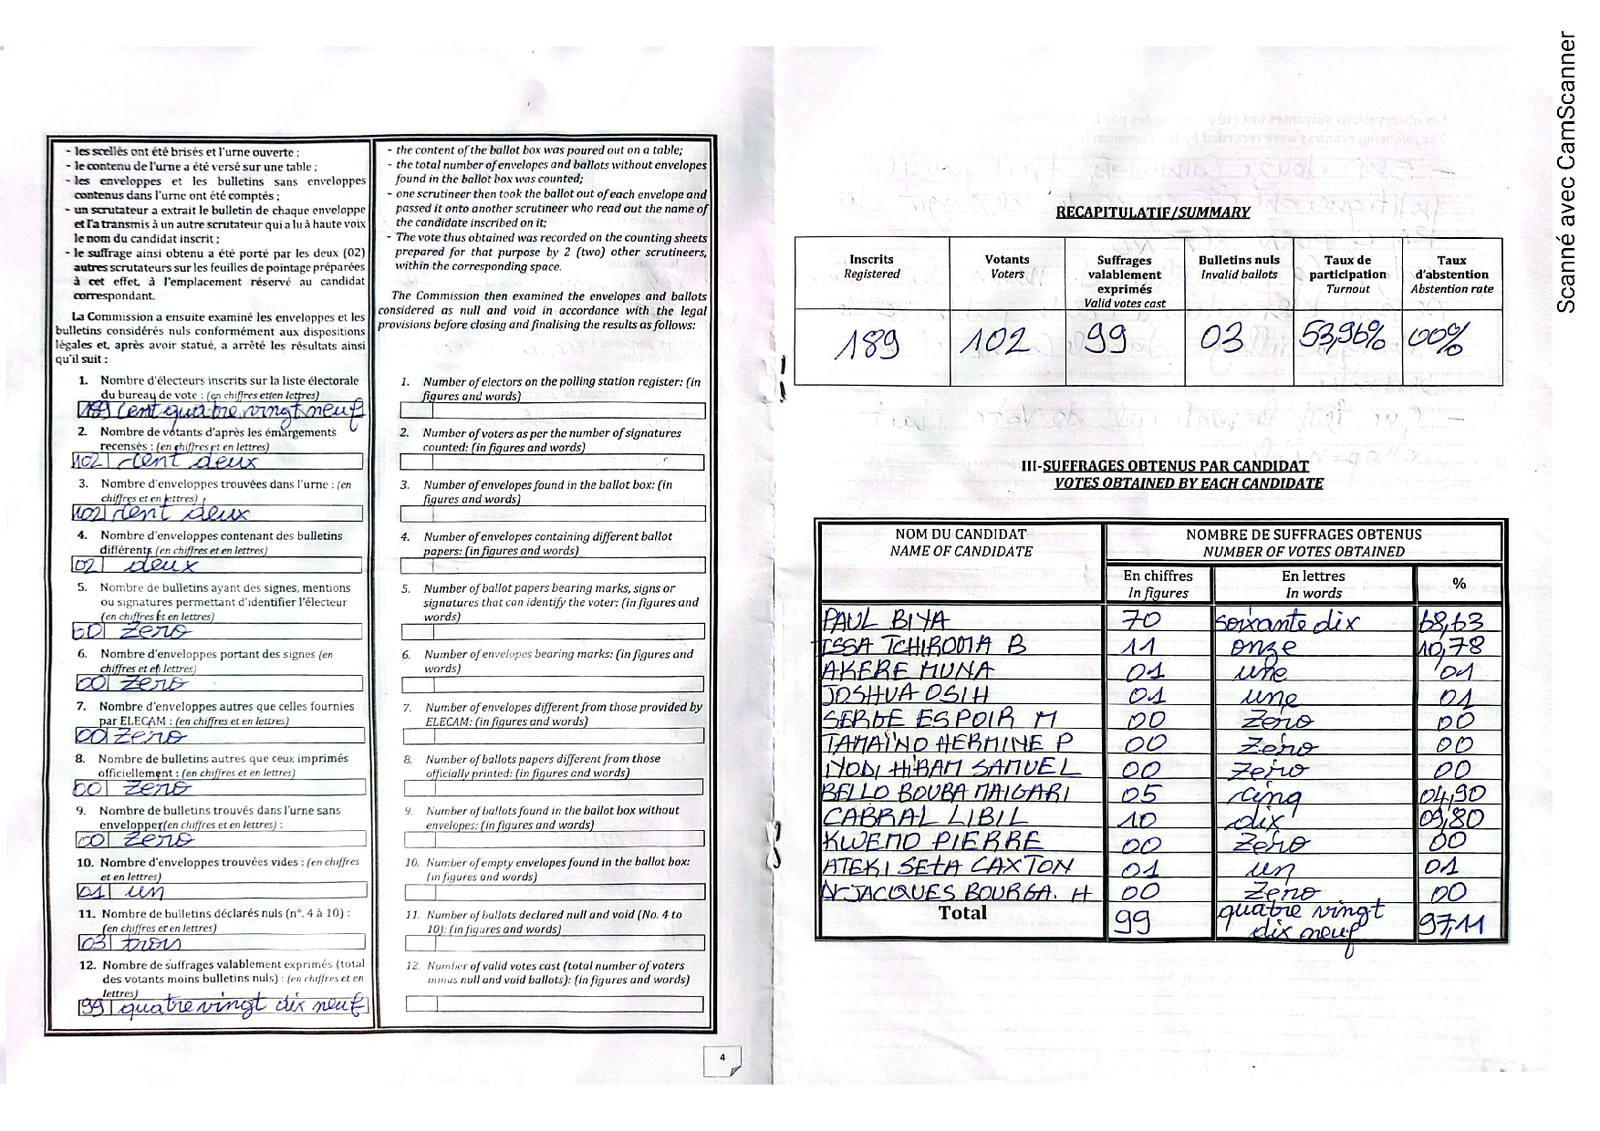 - les scellés ont été brisés et l'urne ouverte ;
- le contenu de l'urne a été versé sur une table ;
- les enveloppes et les bulletins sans enveloppes
contenus dans l'urne ont été comptés ;
- un scrutateur a extrait le bulletin de chaque enveloppe
et l'a transmis à un autre scrutateur qui a lu à haute voix
le nom du candidat inscrit ;
- le suffrage ainsi obtenu a été porté par les deux (02)
autres scrutateurs sur les feuilles de pointage préparées
à cet effet, à l'emplacement réservé au candidat
correspondant.
La Commission a ensuite examiné les enveloppes et les
bulletins considérés nuls conformément aux dispositions
légales et, après avoir statué, a arrêté les résultats ainsi
qu'il suit :
1. Nombre d'électeurs inscrits sur la liste électorale
du bureau de vote : (en chiffres et en lettres)
189 cent quatre vingt neuf
2. Nombre de votants d'après les émargements
recensés : (en chiffres et en lettres)
102 cent deux
3. Nombre d'enveloppes trouvées dans l'urne : (en
chiffres et en lettres)
102 cent deux
4. Nombre d'enveloppes contenant des bulletins
différents (en chiffres et en lettres)
02 deux
5. Nombre de bulletins ayant des signes, mentions
ou signatures permettant d'identifier l'électeur
(en chiffres et en lettres)
00 zero
6. Nombre d'enveloppes portant des signes (en
chiffres et en lettres)
00 zero
7. Nombre d'enveloppes autres que celles fournies
par ELECAM : (en chiffres et en lettres)
00 zero
8. Nombre de bulletins autres que ceux imprimés
officiellement : (en chiffres et en lettres)
00 zero
9. Nombre de bulletins trouvés dans l'urne sans
enveloppe (en chiffres et en lettres) :
00 zero
10. Nombre d'enveloppes trouvées vides : (en chiffres
et en lettres)
01 un
11. Nombre de bulletins déclarés nuls (n°. 4 à 10) :
(en chiffres et en lettres)
03 trois
12. Nombre de suffrages valablement exprimés (total
des votants moins bulletins nuls) : (en chiffres et en
lettres)
99 quatre vingt dix neuf
- the content of the ballot box was poured out on a table;
- the total number of envelopes and ballots without envelopes
found in the ballot box was counted;
- one scrutineer then took the ballot out of each envelope and
passed it onto another scrutineer who read out the name of
the candidate inscribed on it;
- The vote thus obtained was recorded on the counting sheets
prepared for that purpose by 2 (two) other scrutineers,
within the corresponding space.
The Commission then examined the envelopes and ballots
considered as null and void in accordance with the legal
provisions before closing and finalising the results as follows:
1. Number of electors on the polling station register: (in
figures and words)
2. Number of voters as per the number of signatures
counted: (in figures and words)
3. Number of envelopes found in the ballot box: (in
figures and words)
4. Number of envelopes containing different ballot
papers: (in figures and words)
5. Number of ballot papers bearing marks, signs or
signatures that can identify the voter: (in figures and
words)
6. Number of envelopes bearing marks: (in figures and
words)
7. Number of envelopes different from those provided by
ELECAM: (in figures and words)
8. Number of ballots papers different from those
officially printed: (in figures and words)
9. Number of ballots found in the ballot box without
envelopes: (in figures and words)
10. Number of empty envelopes found in the ballot box:
(in figures and words)
11. Number of ballots declared null and void (No. 4 to
10): (in figures and words)
12. Number of valid votes cast (total number of voters
minus null and void ballots): (in figures and words)
4
RECAPITULATIF/SUMMARY
Inscrits Registered | Votants Voters | Suffrages valablement exprimés Valid votes cast | Bulletins nuls Invalid ballots | Taux de participation Turnout | Taux d'abstention Abstention rate
189 | 102 | 99 | 03 | 53,96% | 00%
III-SUFFRAGES OBTENUS PAR CANDIDAT
VOTES OBTAINED BY EACH CANDIDATE
NOM DU CANDIDAT NAME OF CANDIDATE | NOMBRE DE SUFFRAGES OBTENUS NUMBER OF VOTES OBTAINED
En chiffres In figures | En lettres In words | %
PAUL BIYA | 70 | soixante dix | 68,63
ISSA TCHIROMA B | 11 | onze | 10,78
AKERE MUNA | 01 | une | 01
JOSHUA OSIH | 01 | une | 01
SERGE ESPOIR M | 00 | zero | 00
TAMAÏNO HERMINE P | 00 | zero | 00
IYODI HIRAM SAMUEL | 00 | zero | 00
BELLO BOUBA MAIGARI | 05 | cinq | 04,90
CABRAL LIBIL | 10 | dix | 09,80
KWEMO PIERRE | 00 | zero | 00
ATEKI SETA CAXTON | 01 | un | 01
JACQUES BOURGA. H | 00 | zero | 00
Total | 99 | quatre vingt dix neuf | 97,11
Scanné avec CamScanner